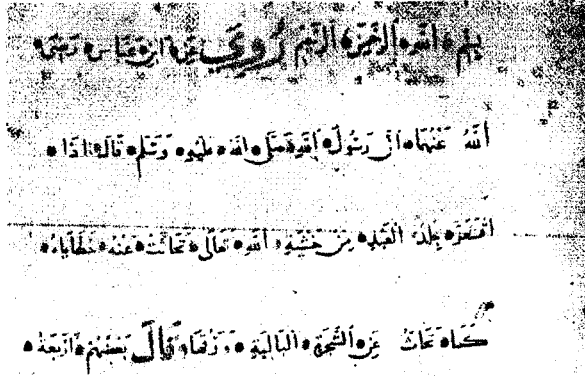 بِسْمِ اللَّهِ الرَّحْمَنِ الرَّحِيمِ رُوِيَ عَنِ ابْنِ عَبَّاسٍ رَضِيَ
اللَّهُ عَنْهُمَا أَنَّ رَسُولَ اللَّهِ صَلَّى اللَّهُ عَلَيْهِ وَسَلَّمَ قَالَ إِذَا
اقْشَعَرَّ جِلْدُ الْعَبْدِ مِنْ خَشْيَةِ اللَّهِ تَعَالَى تَحَاتَّتْ عَنْهُ خَطَايَاهُ
كَمَا تَحَاتُّ عَنِ الشَّجَرَةِ الْبَالِيَةِ وَرَقُهَا قَالَ بَعْضُهُمْ أَرْبَعَةٌ